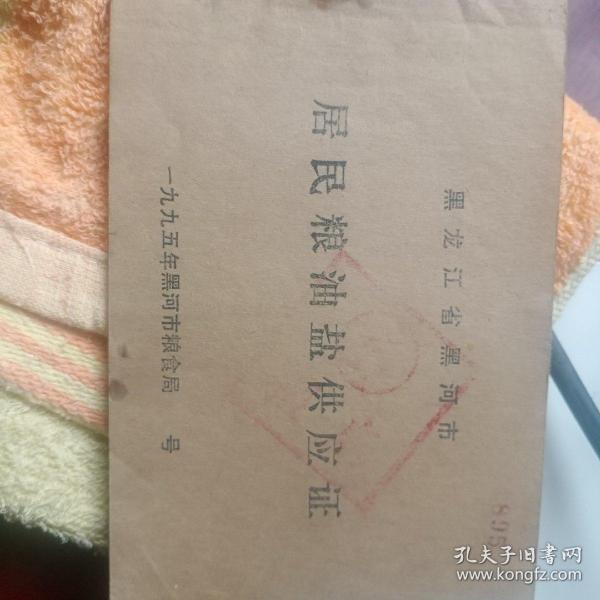 黑龙江省黑河市
居民粮油盐供应证
一九九五年黑河市粮食局 号
孔夫子旧书网
www.kongfz.com